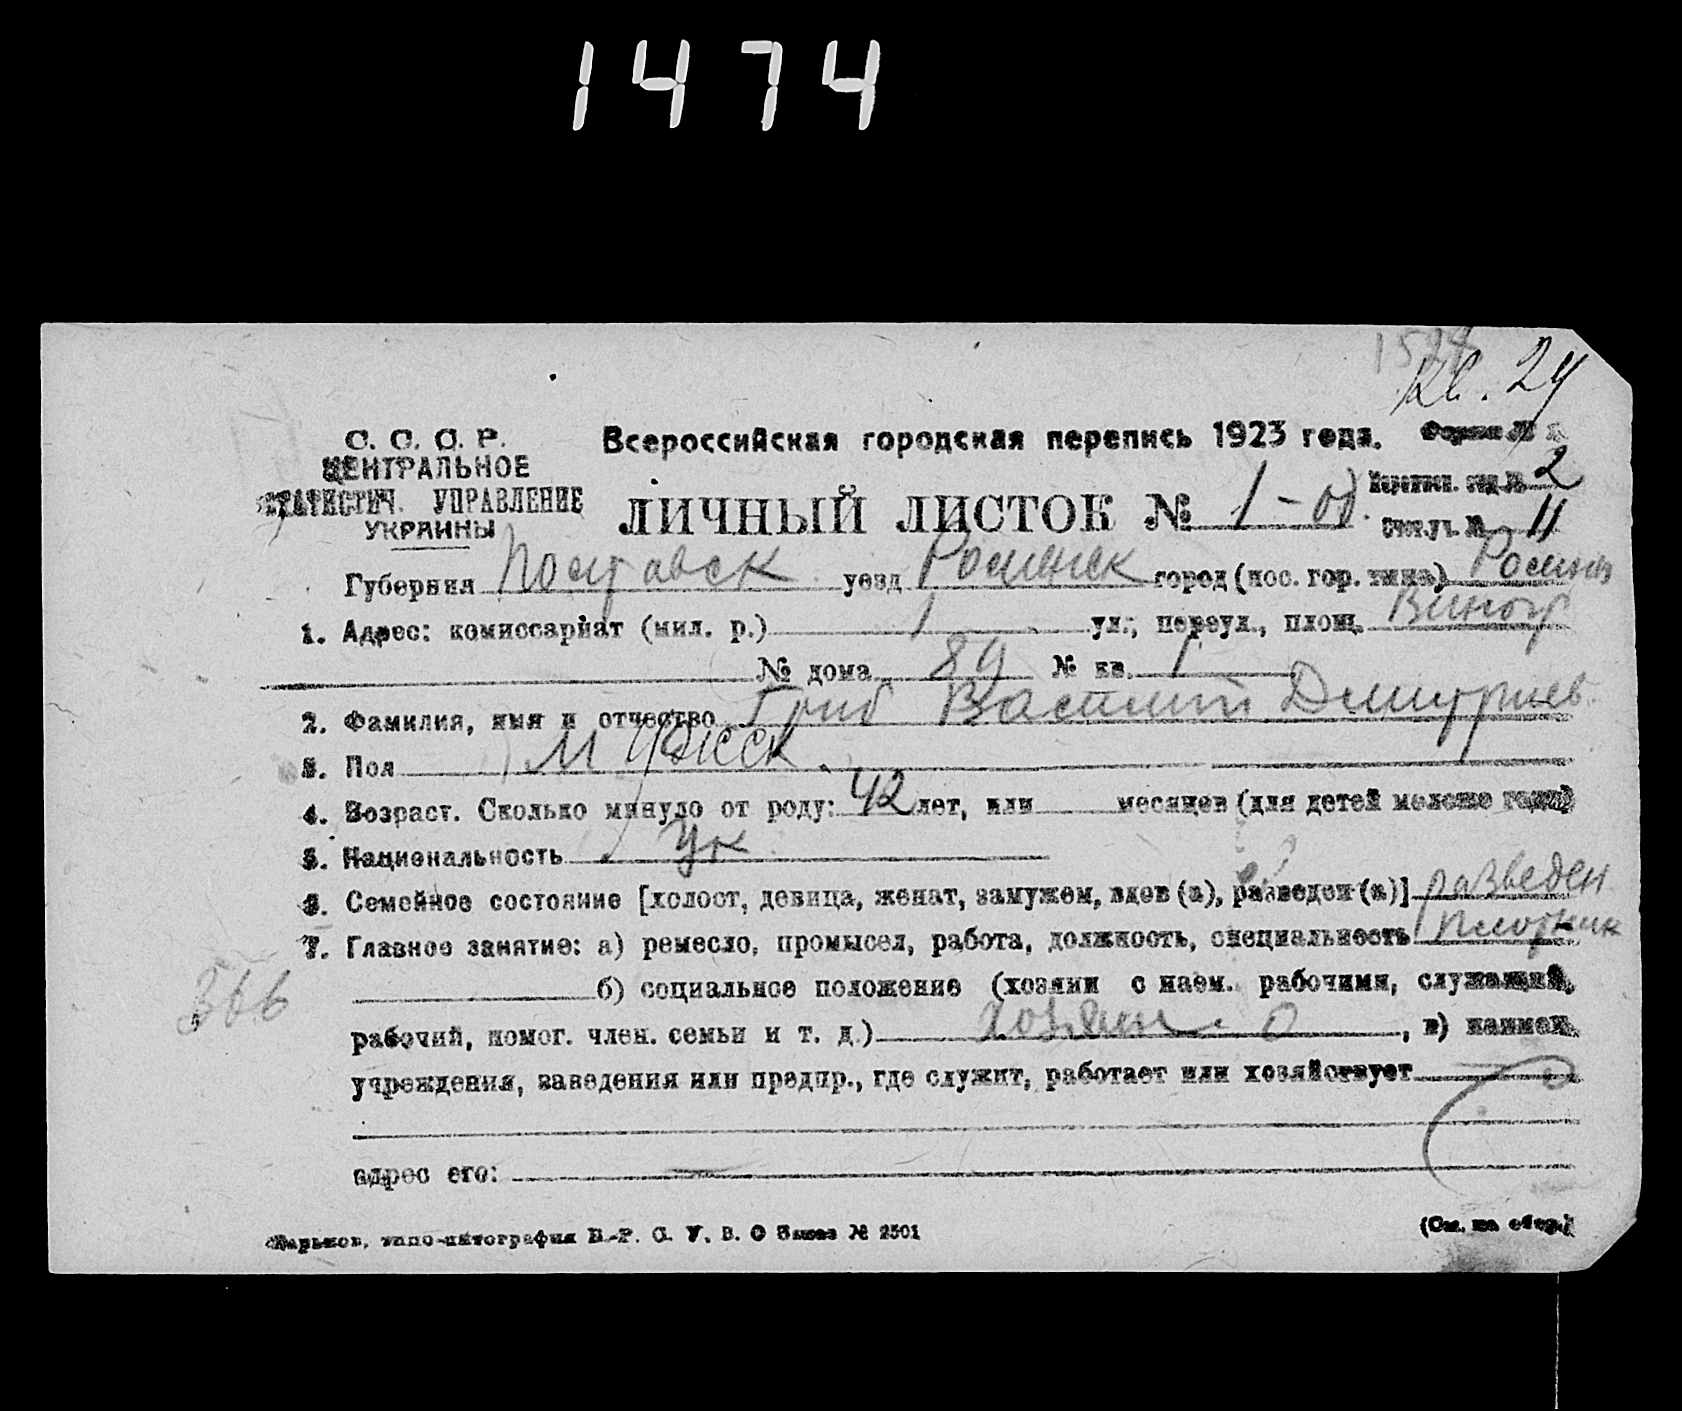 1474
1528
кв. 24
С. С. С. Р.
ЦЕНТРАЛЬНОЕ
СТАТИСТИЧ. УПРАВЛЕНИЕ
УКРАИНЫ
Всероссийская городская перепись 1923 года. Форма №
ЛИЧНЫЙ ЛИСТОК № 1-об
№ 2
Счетч. уч. № 11
Губерния Полтавск уезд Роменск город (пос. гор. типа) Ромны
1. Адрес: комиссариат (мил. р.) 1 ул., переул., площ.
№ дома 89 № кв. 1
2. Фамилия, имя и отчество Гриб Василий Дмитриев
3. Пол мужск.
4. Возраст. Сколько минуло от роду: 42 лет, или месяцев (для детей моложе года)
5. Национальность Ук
6. Семейное состояние [холост, девица, женат, замужем, вдов (а), разведен (а)] разведен
7. Главное занятие: а) ремесло, промысел, работа, должность, специальность плотник
366
б) социальное положение (хозяин с наем. рабочими, служащий,
рабочий, помог. член. семьи и т. д.) хозяин о , в) наимен.
учреждения, заведения или предпр., где служит, работает или хозяйствует
адрес его:
Харьков, типо-литография В.-Р. С. У. В. О Заказ № 2501
(См. на обор.)